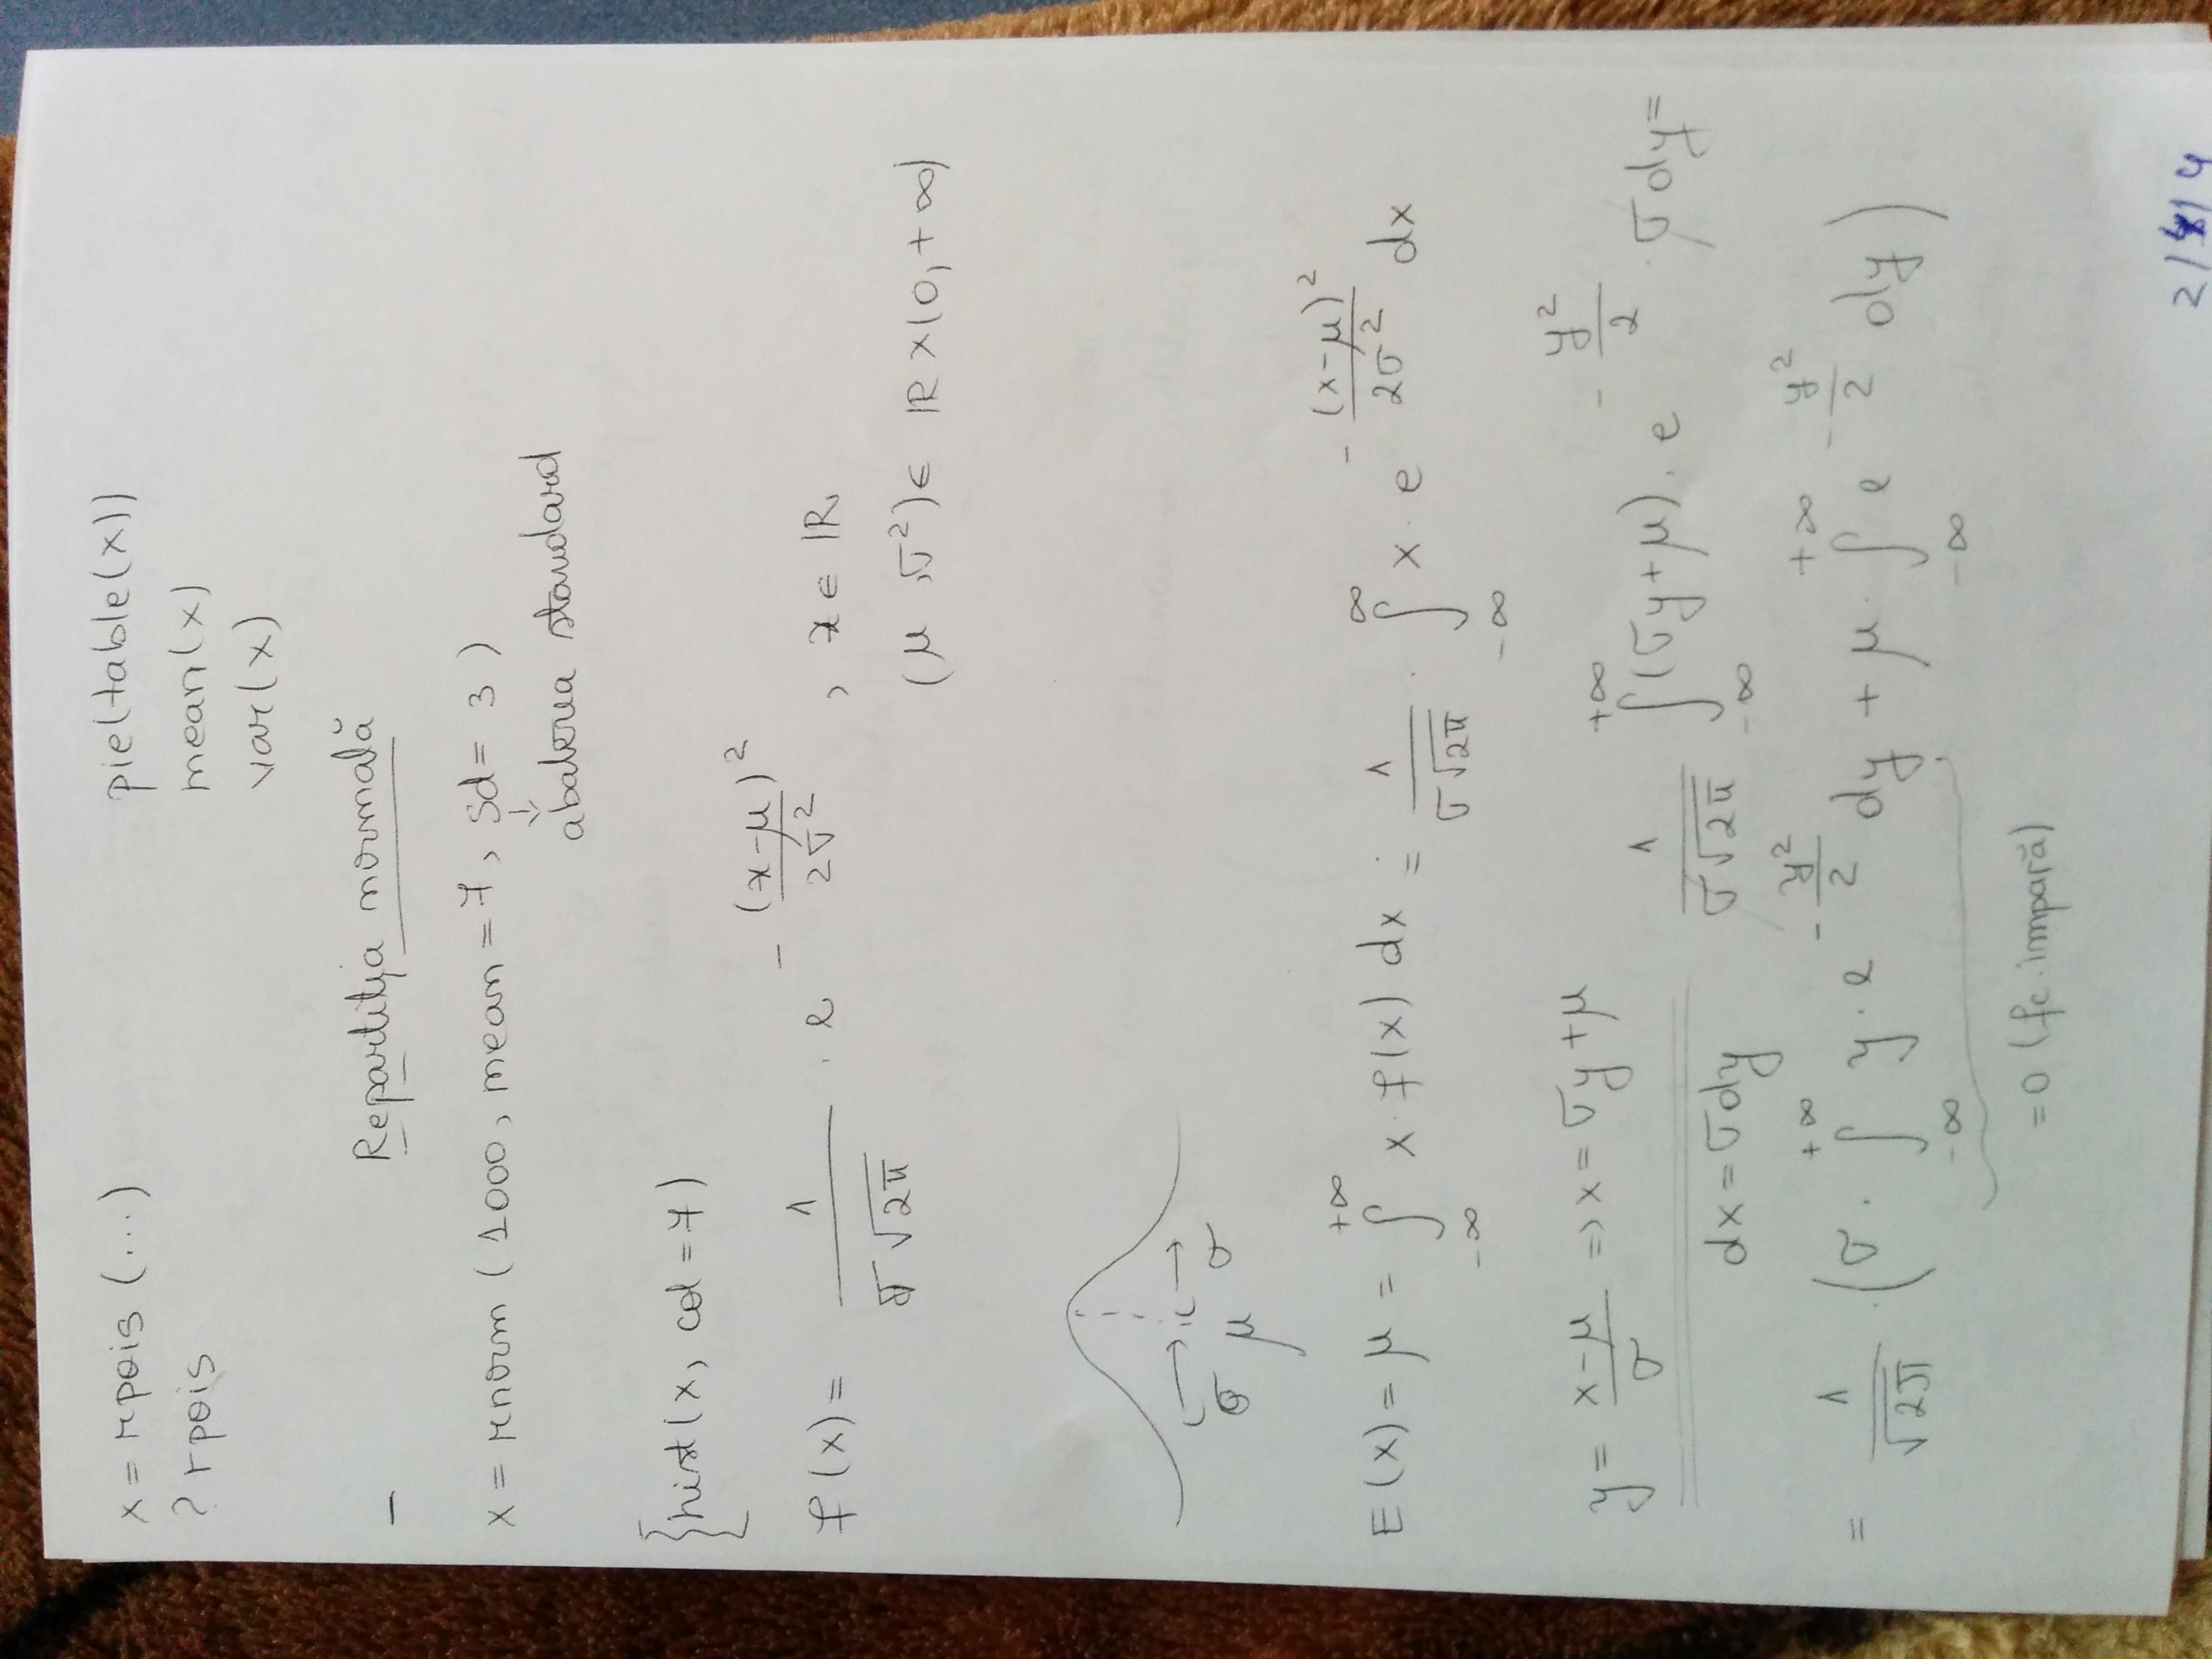 x = rpois (...)
pie(table(x))
? rpois
mean(x)
var(x)
— Repartiția normală
x = rnorm ( 1000, mean = 7, sd = 3 )
↓
abaterea standard
{hist(x, col = 7)
f(x) = 1/(σ√2π) · e^(-(x-μ)²/2σ²) , x ∈ ℝ
(μ, σ²) ∈ ℝ × (0, +∞)
σ μ σ
E(x) = μ = ∫_{-∞}^{+∞} x · f(x) dx = 1/(σ√2π) · ∫_{-∞}^{∞} x · e^(-(x-μ)²/2σ²) dx
y = (x-μ)/σ => x = σy + μ
dx = σdy
1/(σ√2π) ∫_{-∞}^{+∞} (σy + μ) · e^(-y²/2) · σ dy =
= 1/√2π · (σ · ∫_{-∞}^{+∞} y · e^(-y²/2) dy + μ · ∫_{-∞}^{+∞} e^(-y²/2) dy)
= 0 (fc. impară)